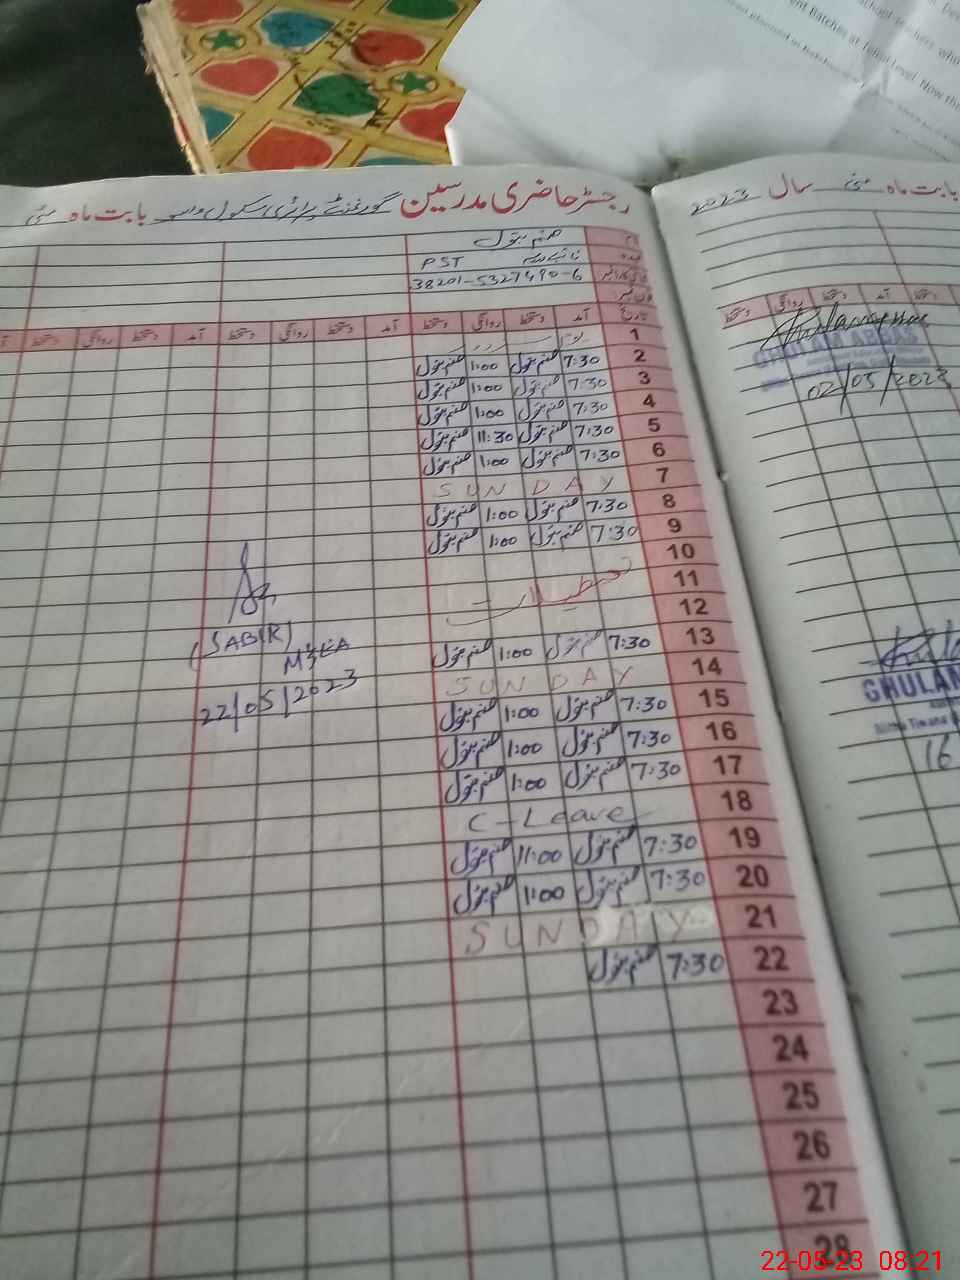 ent Batches at Tehsil Level. Now the
رجسٹر حاضری مدرسین گورنمنٹ پرائمری سکول بابت ماہ مئی
بابت ماہ مئی سال 2023
نام صنم بتول
عہدہ PST
شناختی کارڈ نمبر 38201-5327490-6
تاریخ آمد دستخط روانگی دستخط آمد دستخط روانگی دستخط آمد دستخط روانگی دستخط
1
2 7:30 صنم بتول 1:00 صنم بتول
3 7:30 صنم بتول 1:00 صنم بتول
4 7:30 صنم بتول 1:00 صنم بتول
5 7:30 صنم بتول 11:30 صنم بتول
6 7:30 صنم بتول 1:00 صنم بتول
7 SUNDAY
8 7:30 صنم بتول 1:00 صنم بتول
9 7:30 صنم بتول 1:00 صنم بتول
10
11 تعطیلات
12
13 7:30 صنم بتول 1:00 صنم بتول
14 SUNDAY
15 7:30 صنم بتول 1:00 صنم بتول
16 7:30 صنم بتول 1:00 صنم بتول
17 7:30 صنم بتول 1:00 صنم بتول
18 C-Leave
19 7:30 صنم بتول 11:00 صنم بتول
20 7:30 صنم بتول 1:00 صنم بتول
21 SUNDAY
22 7:30 صنم بتول
23
24
25
26
27
28
(SABIR)
MEA
22/05/2023
آمد دستخط روانگی دستخط
GHULAM ABBAS
02/05/2023
GHULAM
16
22-05-23 08:21